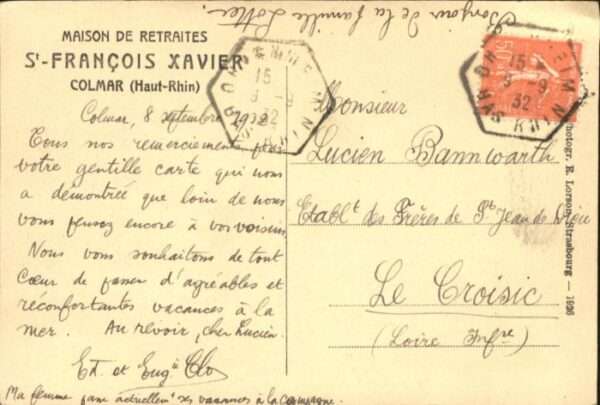 Bonjour de la famille
MAISON DE RETRAITES
St-FRANÇOIS XAVIER
COLMAR (Haut-Rhin)
Colmar, 8 septembre 1932
Tous nos remerciements pour
votre gentille carte qui nous
a démontrée que loin de nous
vous pensez encore à vos voisins.
Nous vous souhaitons de tout
cœur de passer d'agréables et
réconfortantes vacances à la
mer. Au revoir, cher Lucien.
Ed. et Eug. Clo
Ma femme passe actuellemt ses vacances à la campagne.
Monsieur
Lucien Bannwarth
Etablt des Frères de St Jean de Dieu
Le Croisic
(Loire Infre)
15
9
32
HAUT RHIN
50c
15
9
32
HAUT RHIN
Photogr. E. Lorson, Strasbourg — 1926